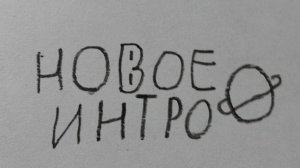 НОВОЕ
ИНТРО